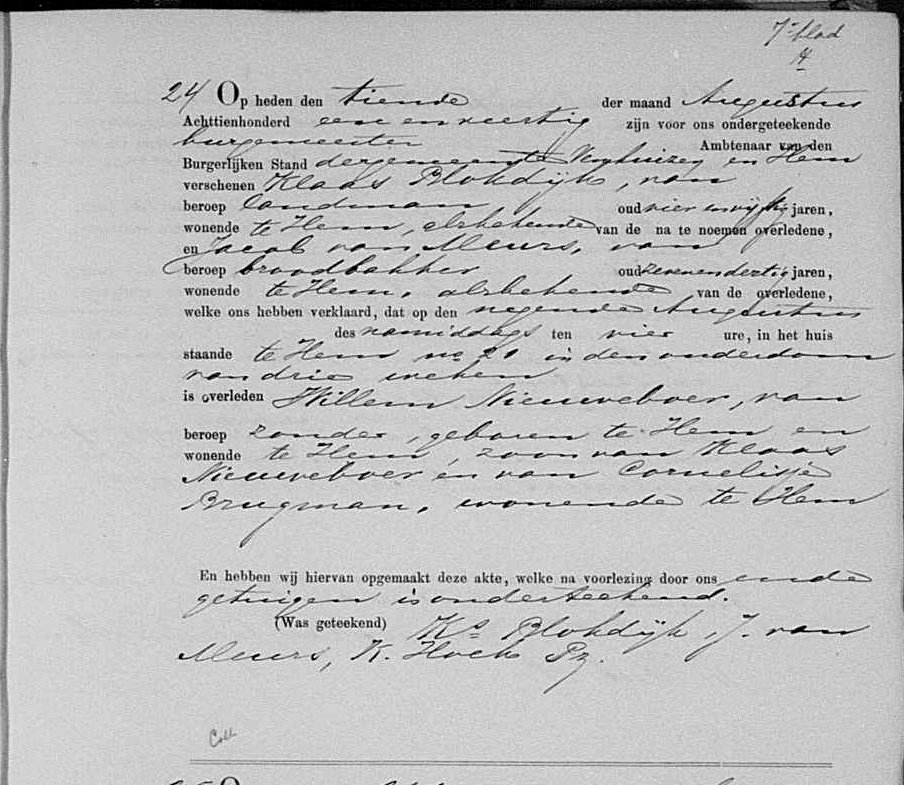 7e blad
24 Op heden den tiende der maand Augustus
Achttienhonderd een en veertig zijn voor ons ondergeteekende
burgemeester Ambtenaar van den
Burgerlijken Stand der gemeente Venhuizen en Hem
verschenen Klaas Blokdijk, van
beroep landman oud vier en vijftig jaren,
wonende te Hem, als bekende van de na te noemen overledene,
en Jacob van Meurs, van
beroep broodbakker oud zevenendertig jaren,
wonende te Hem, als bekende van de overledene,
welke ons hebben verklaard, dat op den negende Augustus
des namiddags ten vier ure, in het huis
staande te Hem no in den ouderdom
van drie weken
is overleden Willem Nieuweboer, van
beroep zonder, geboren te Hem en
wonende te Hem, zoon van Klaas
Nieuweboer en van Cornelisje
Brugman, wonende te Hem
En hebben wij hiervan opgemaakt deze akte, welke na voorlezing door ons en de
getuigen is onderteekend.
(Was geteekend) Ks Blokdijk, J. van
Meurs, K. Hoek Pz.
Coll